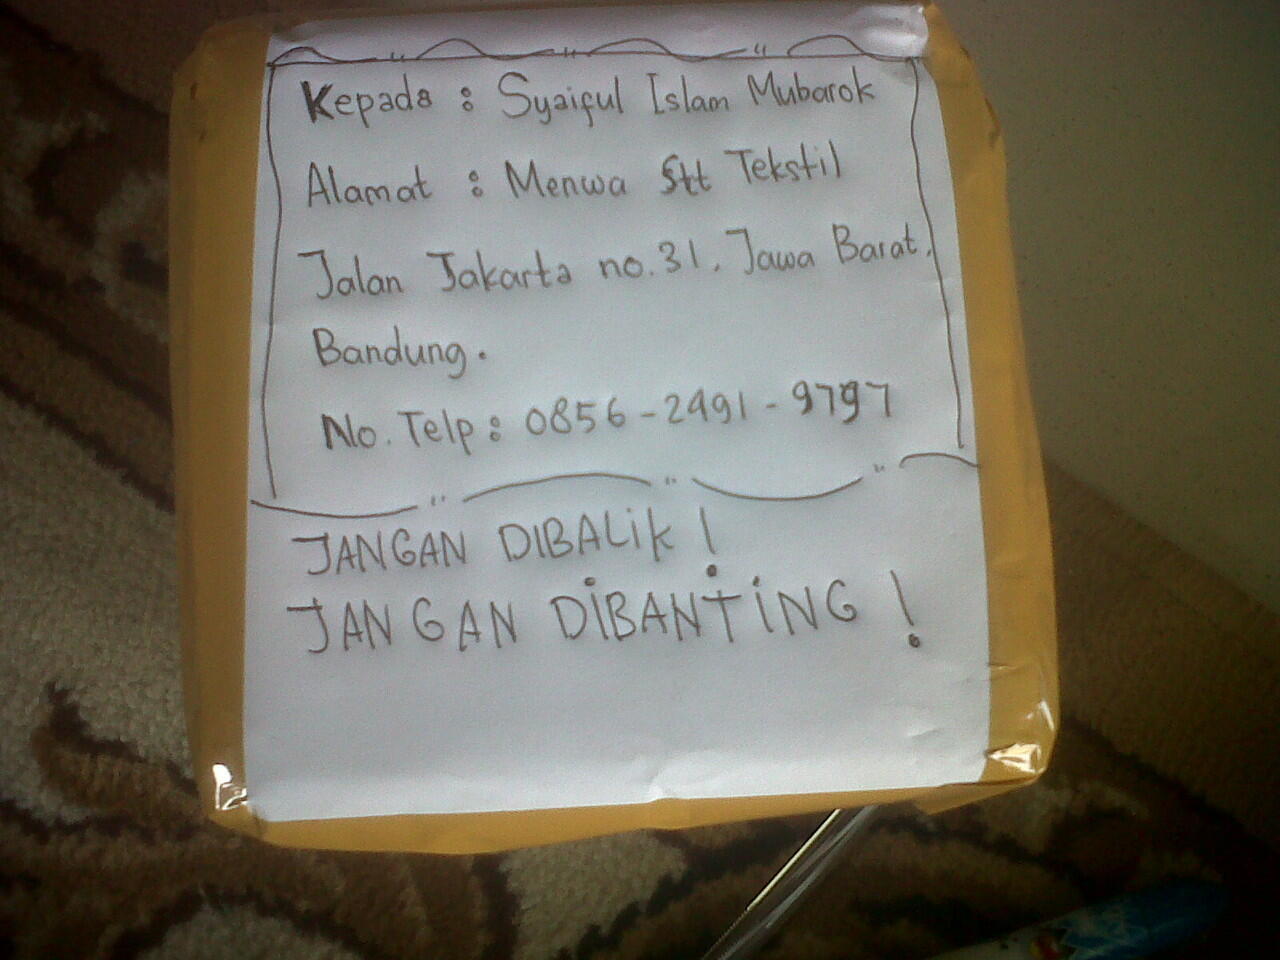 Kepada : Syaiful Islam Mubarok
Alamat : Menwa Stt Tekstil
Jalan Jakarta no.31, Jawa Barat,
Bandung.
No. Telp : 0856-2491-9797
JANGAN DIBALiK !
JANGAN DiBANTiNG !